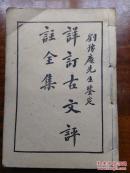 劉豫庵先生鑒定
詳訂古文評
註全集